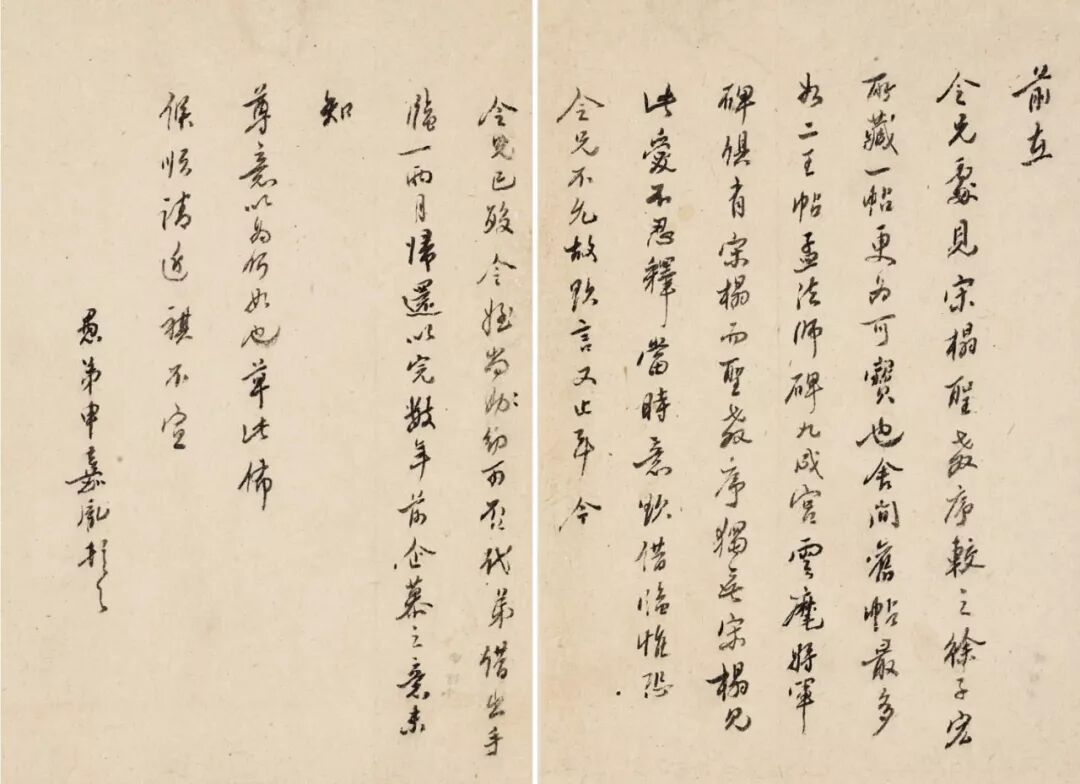 前在
令兄處見宋榻聖教序較之徐子宏
所藏一帖更為可寶也舍間舊帖最多
如二王帖孟法師碑九成宮雲麾將軍
碑俱有宋榻而聖教序獨無宋榻見
此愛不忍釋當時意欲借臨惟恐
令兄不允故欲言又止耳今
令兄已歿令姪尚幼幼可否代弟借出手
臨一兩月歸還以完數年前企慕之意未
知
尊意以為何如也草此佈
候順請近祺不宣
愚弟申嘉胤頓首